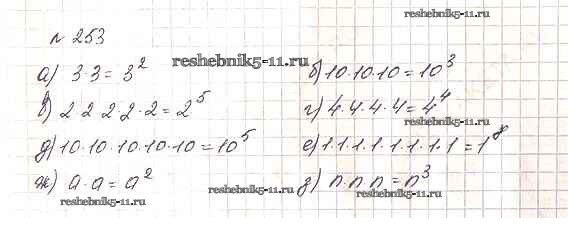 № 253
reshebnik5-11.ru
reshebnik5-11.ru
а) 3·3=3² б) 10·10·10=10³
в) 2·2·2·2·2=2⁵ г) 4·4·4·4=4⁴
reshebnik5-11.ru
д) 10·10·10·10·10=10⁵ е) 1·1·1·1·1·1·1·1=1⁸
ж) a·a=a² з) n·n·n=n³
reshebnik5-11.ru
reshebnik5-11.ru